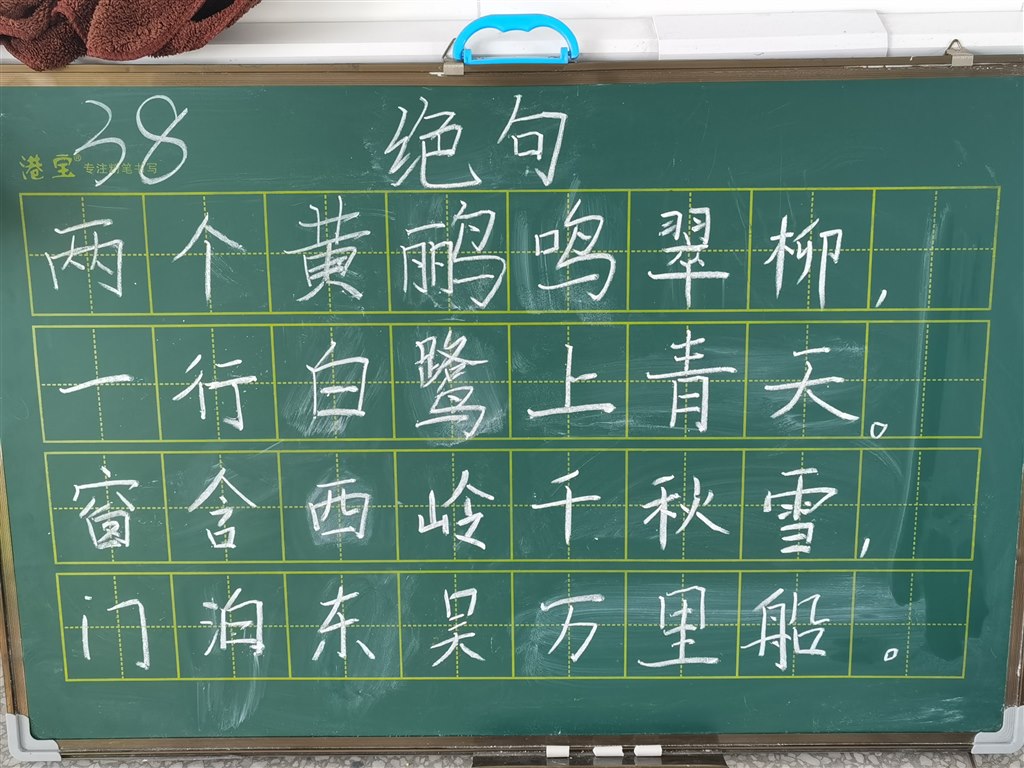 38 绝句
港宝® 专注粉笔书写
两个黄鹂鸣翠柳,
一行白鹭上青天。
窗含西岭千秋雪,
门泊东吴万里船。